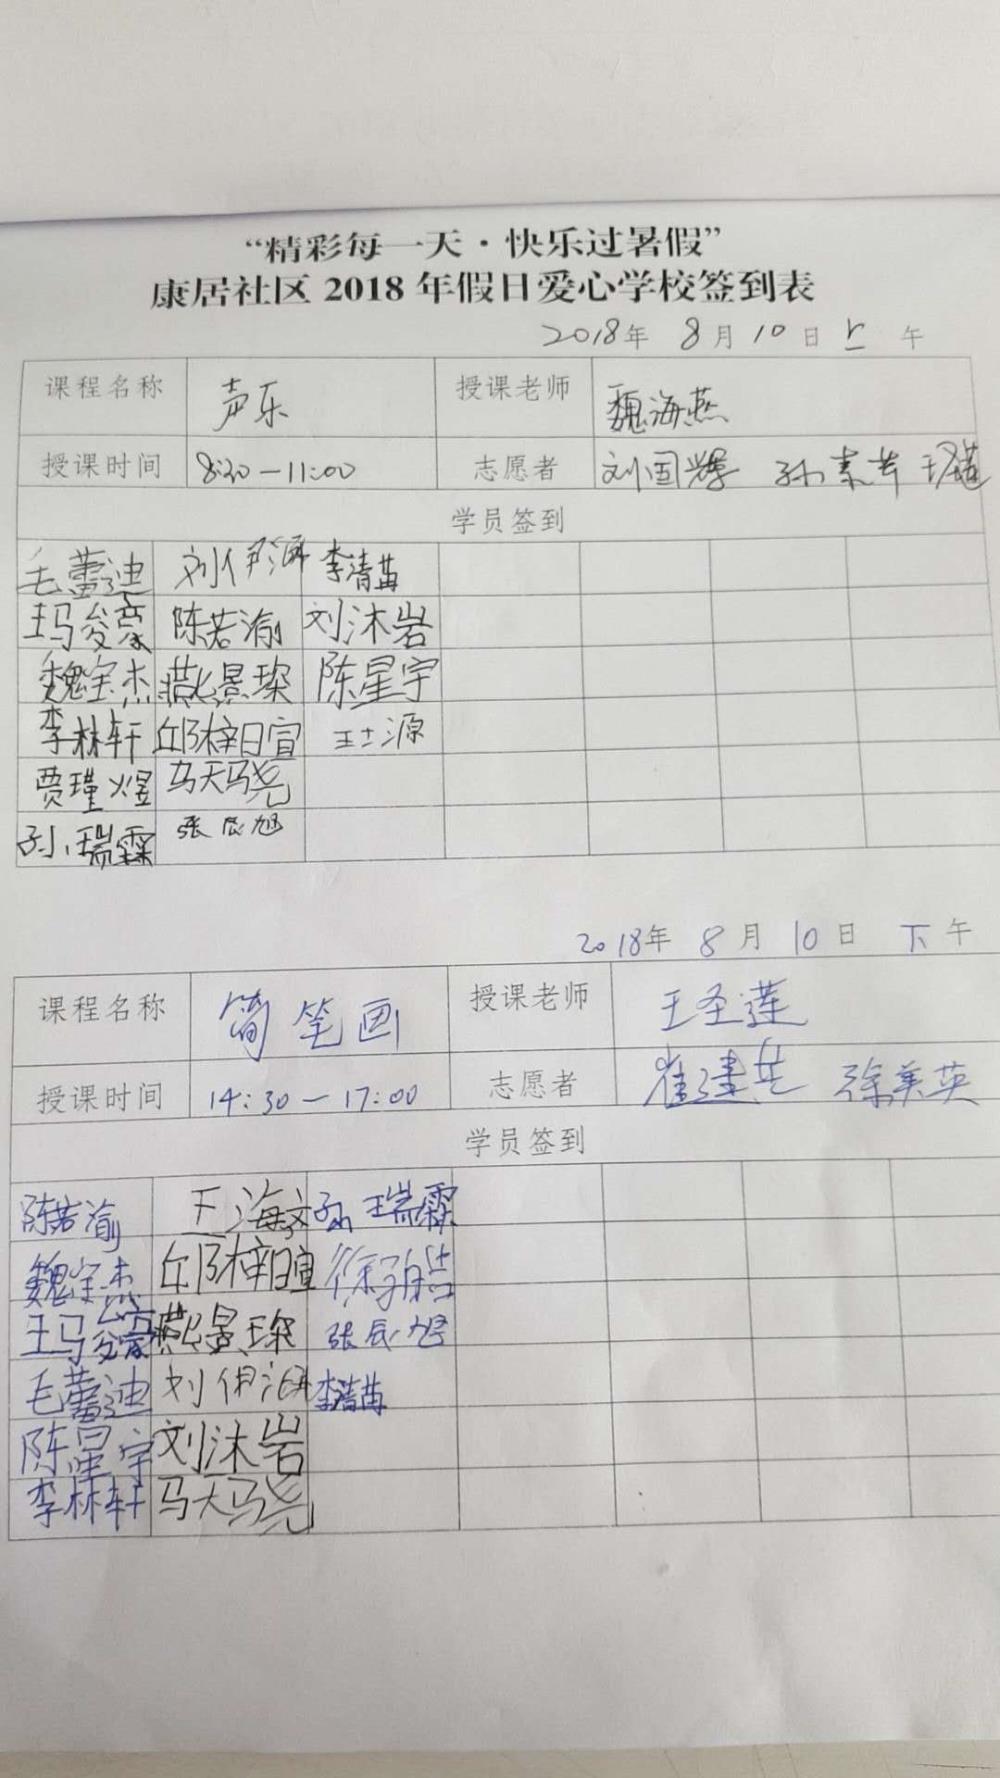 “精彩每一天·快乐过暑假”
康居社区 2018 年假日爱心学校签到表
2018年 8月10日上午
课程名称 声乐 授课老师 魏海燕
授课时间 8:30—11:00 志愿者 刘国辉 孙素芹
学员签到
毛蕾迪 刘伊 李清苗
王骏豪 陈若渝 刘沐岩
魏宝杰 燕景琛 陈星宇
李林轩 邱梓暄 王士源
贾瑾煜 马天骁
孙瑞霖 张辰旭
2018年 8月10日 下午
课程名称 简笔画 授课老师 王圣莲
授课时间 14:30—17:00 志愿者 崔建英 徐美英
学员签到
陈若渝 王海文 孙瑞霖
魏宝杰 邱梓暄 徐子皓
王骏豪 燕景琛 张辰旭
毛蕾迪 刘伊 李清苗
陈星宇 刘沐岩
李林轩 马天骁